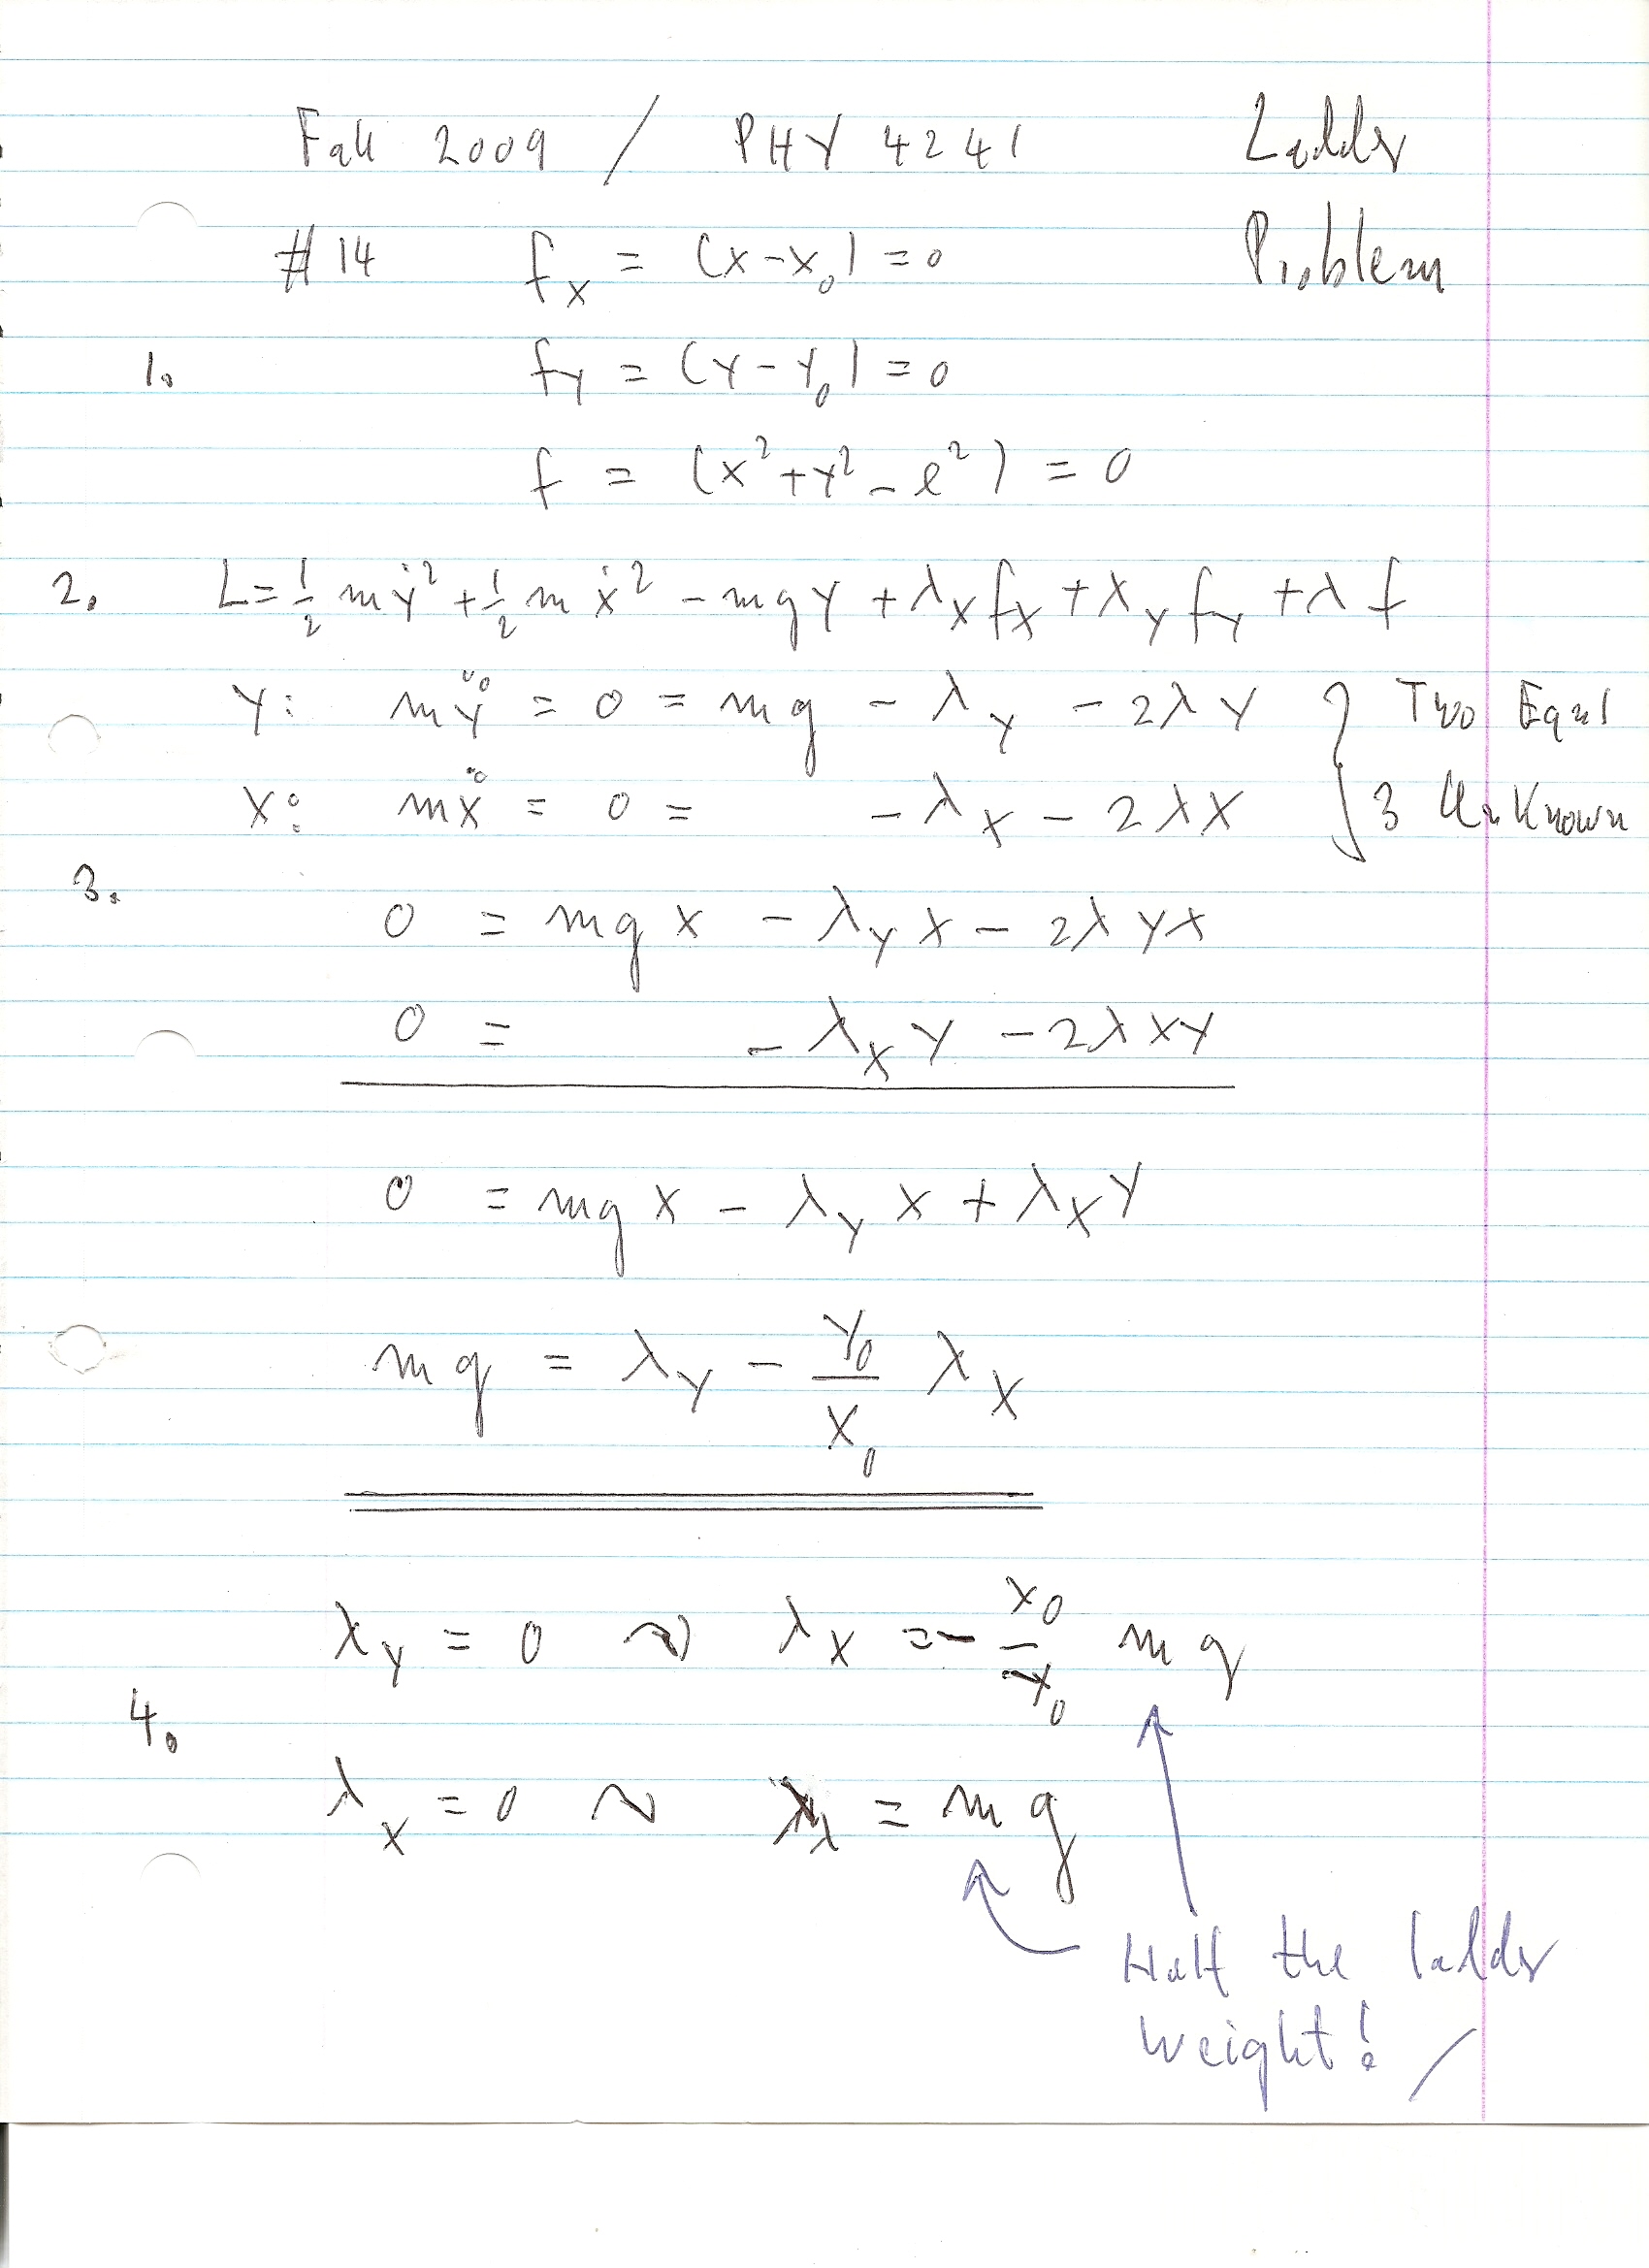 Fall 2009 / PHY 4241 Ladder
Problem
#14 f_x = (x-x_0) = 0
1. f_y = (y-y_0) = 0
f = (x²+y²-ℓ²) = 0
2. L = 1/2 mẏ² + 1/2 mẋ² - mgy + λ_x f_x + λ_y f_y + λ f
y: mÿ = 0 = mg - λ_y - 2λy } Two Eqns
x: mẍ = 0 = - λ_x - 2λx } 3 Unknown
3.
0 = mgx - λ_y x - 2λyx
0 = - λ_x y - 2λxy
0 = mgx - λ_y x + λ_x y
mg = λ_y - y_0/x_0 λ_x
λ_y = 0 ~> λ_x = - x_0/y_0 mg
4.
λ_x = 0 ~> = mg
Half the ladder
weight!